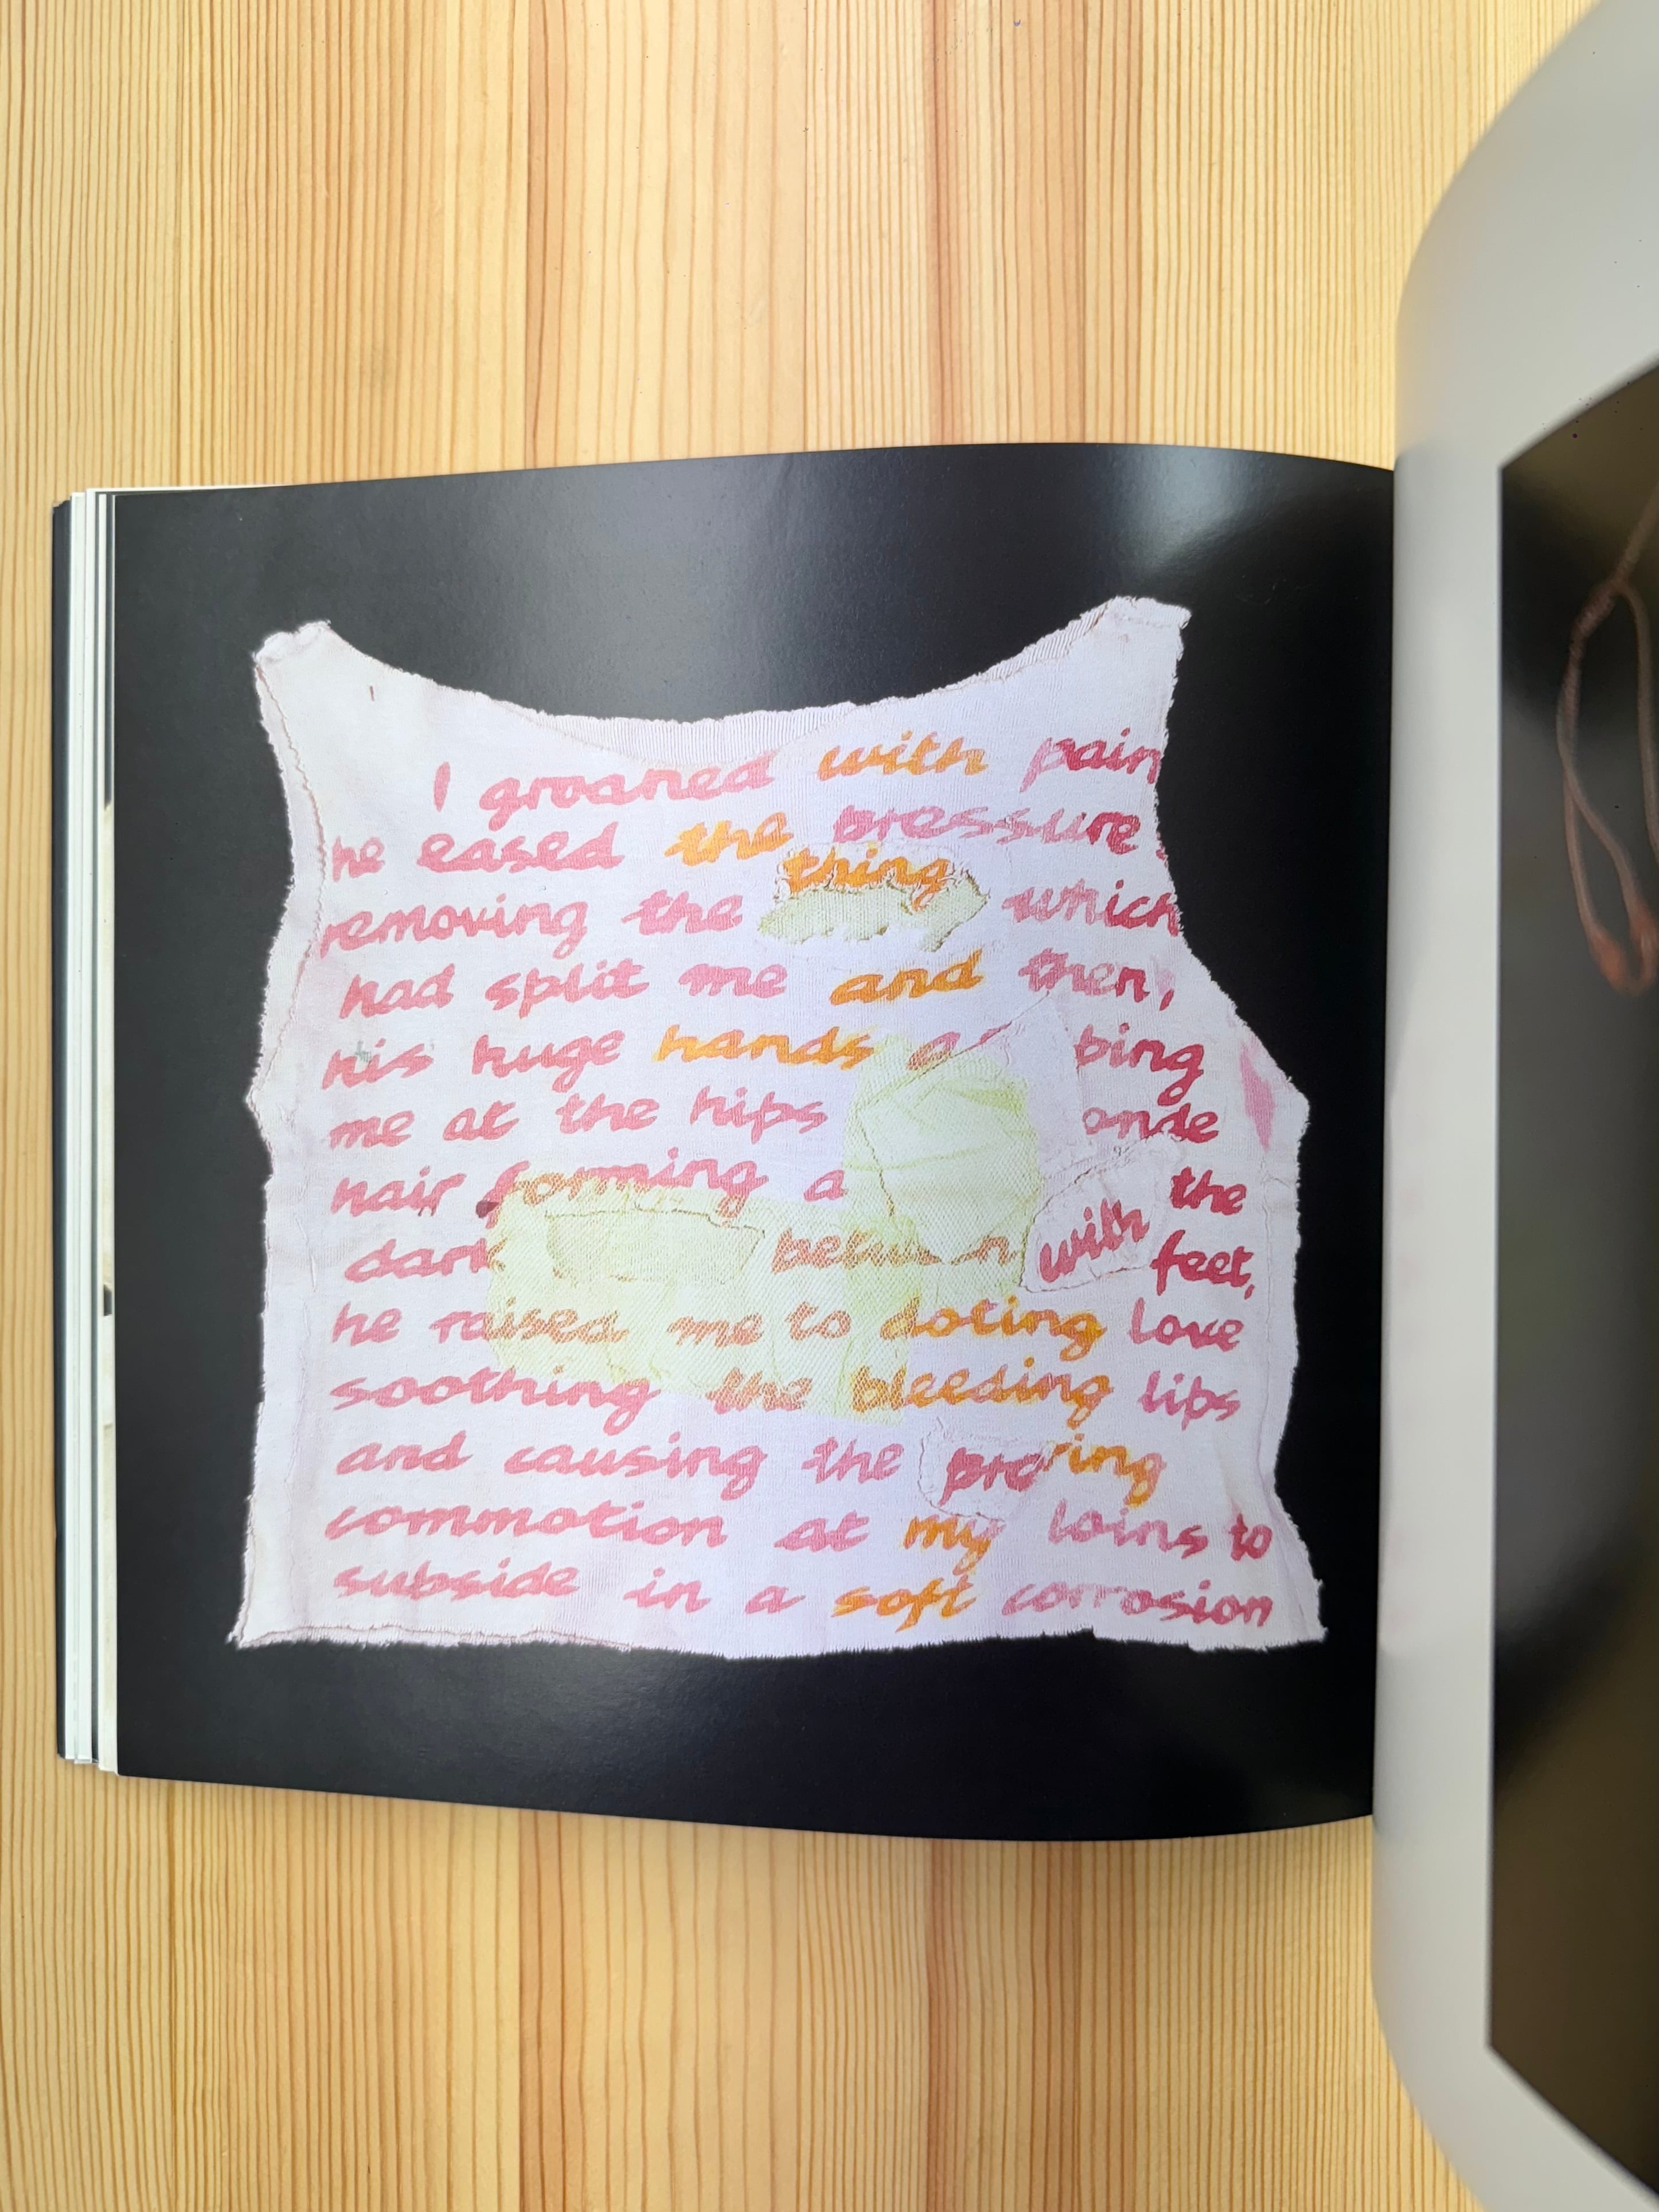 I groaned with pain
he eased the pressure
removing the thing which
had split me and then,
his huge hands a bing
me at the hips onde
hair forming a with the
dark between feet,
he raised me to doting love
soothing the bleeding lips
and causing the pro ring
commotion at my loins to
subside in a soft corrosion